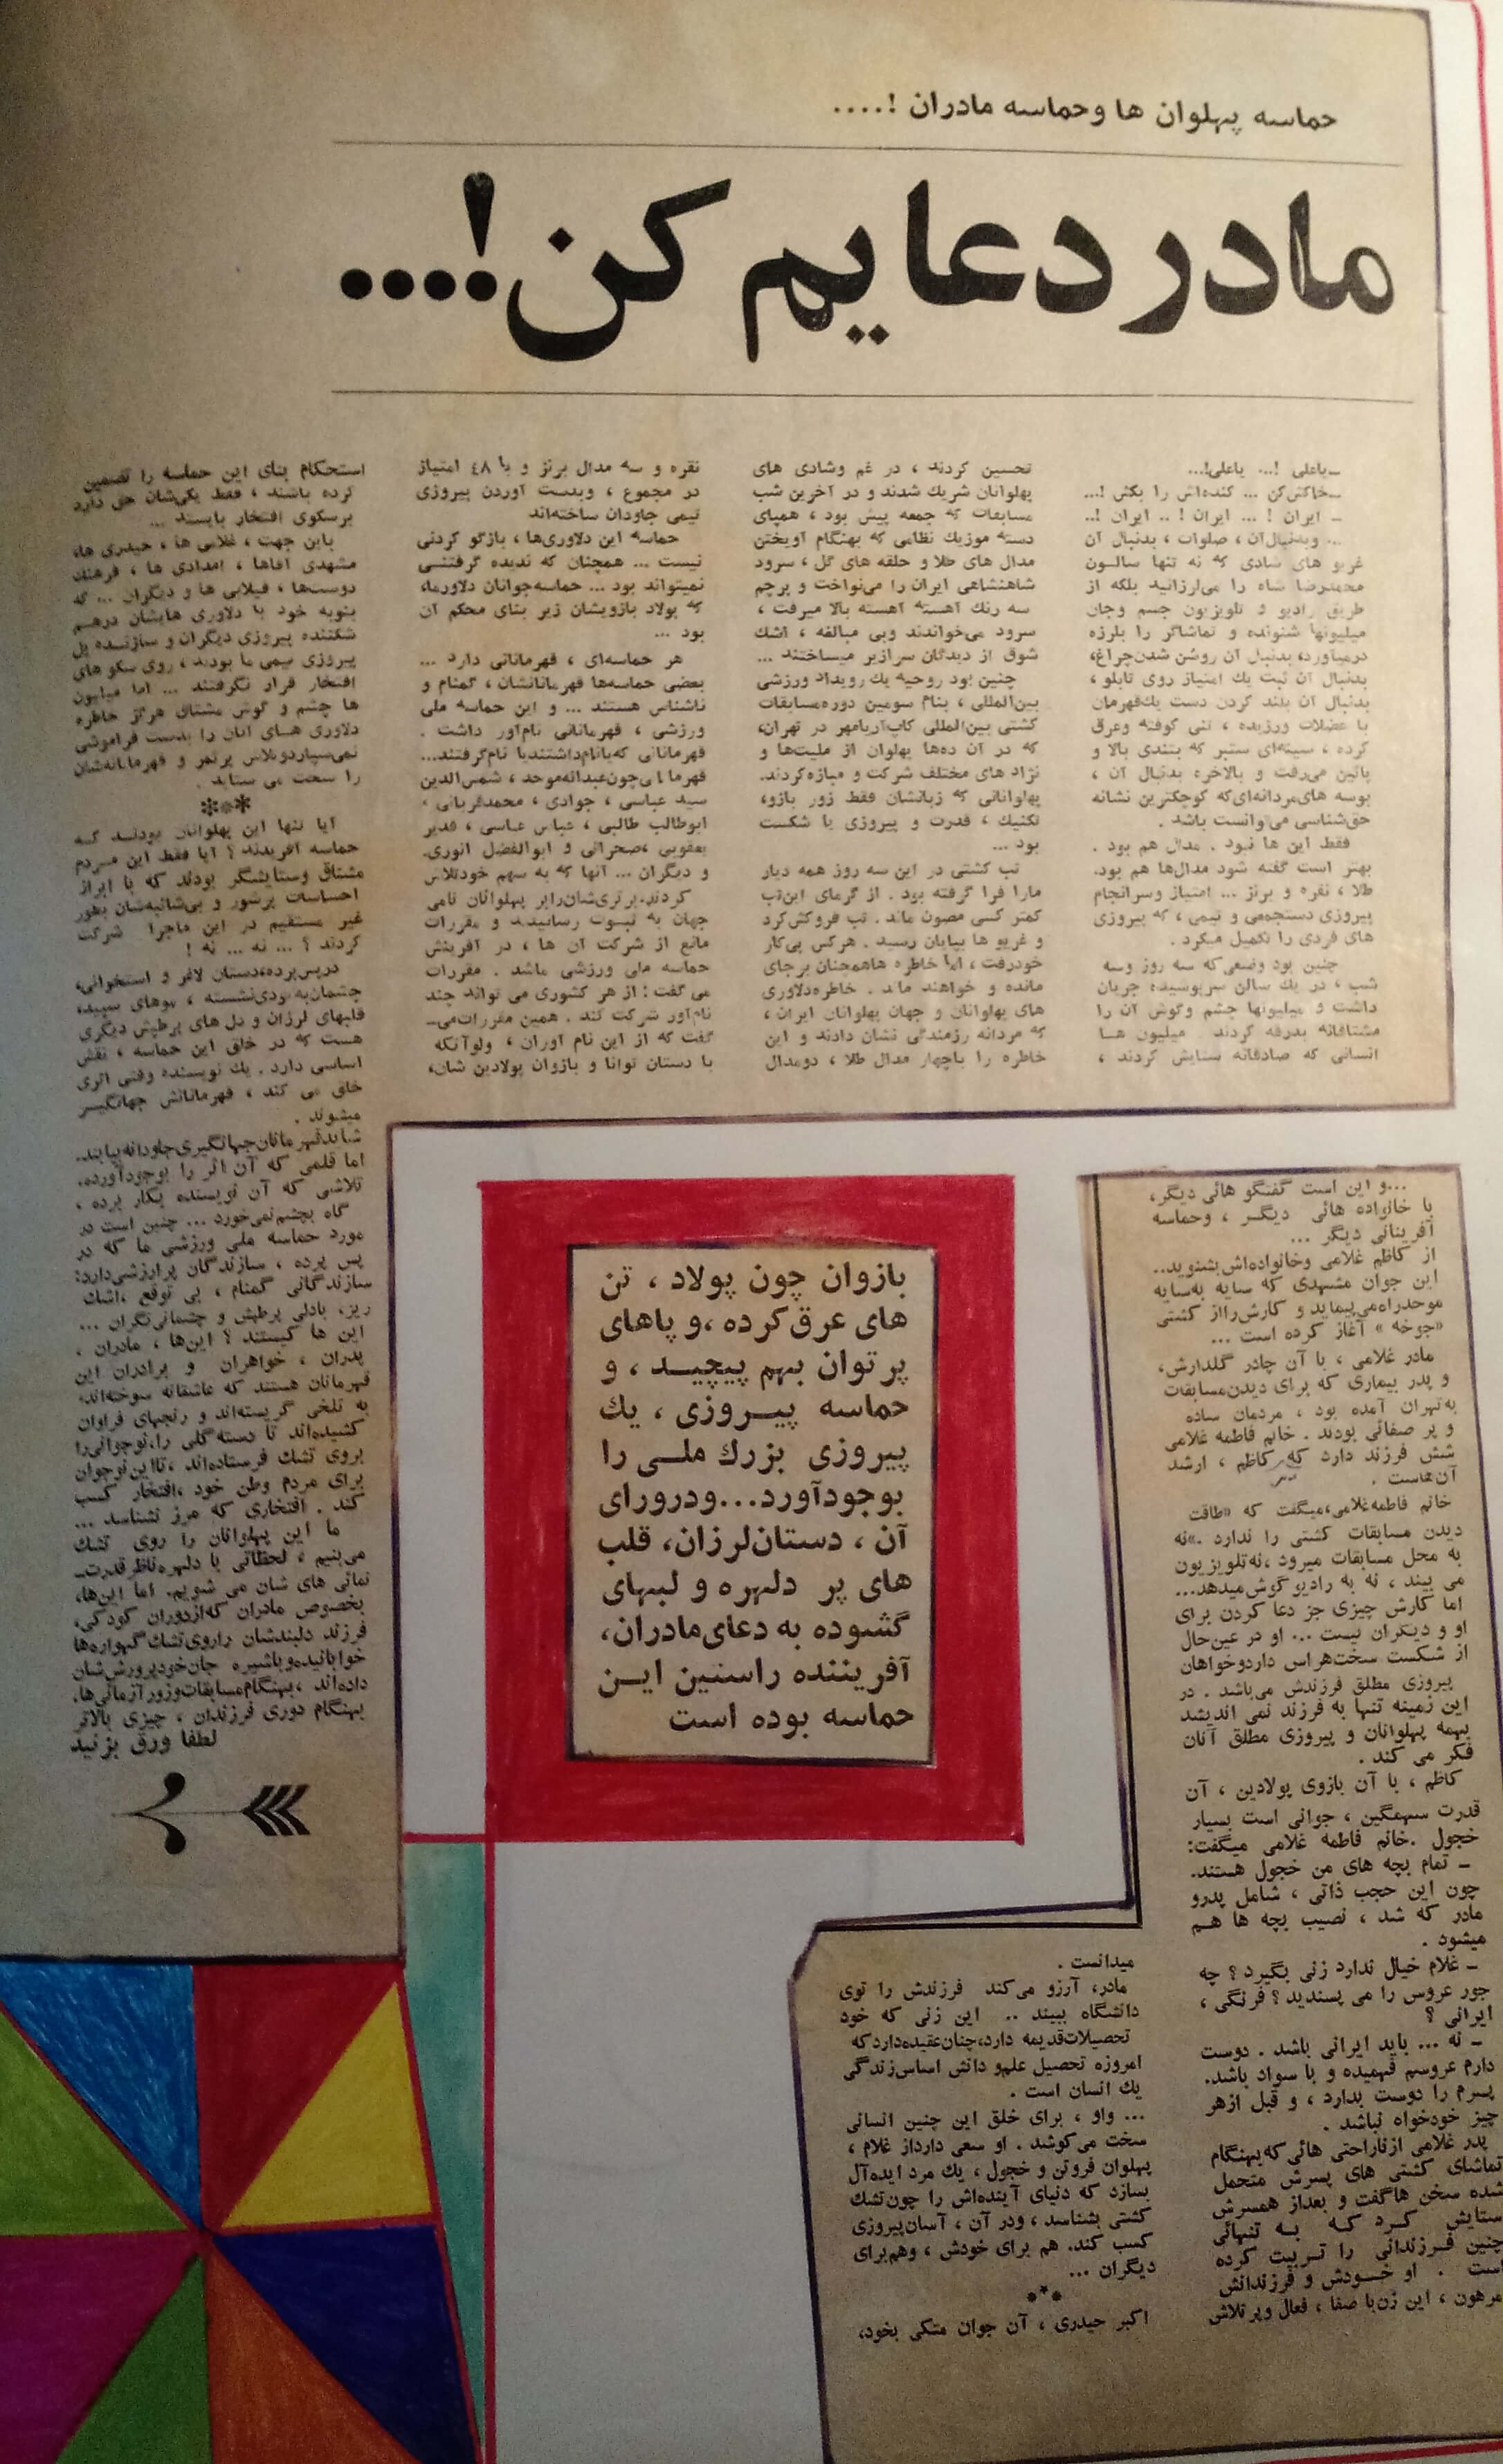 حماسه پهلوان ها وحماسه مادران !....
مادر دعايم كن!....
ـ ياعلى !... ياعلى!...
ـ خاكش‌كن ... كنده‌اش را بكش !...
ـ ايران ! ... ايران ! .. ايران !..
... وبدنبال‌آن ، صلوات ، بدنبال آن
غريو هاى شادى كه نه تنها سالـون
محمدرضا شاه را مى‌لرزانيد بلكه از
طريق راديو و تلويزيون جسم وجان
ميليونها شنونده و تماشاگر را بلرزه
درمياورد، بدنبال آن روشن شدن‌چراغ،
بدنبال آن ثبت يك امتياز روى تابلو ،
بدنبال آن بلند كردن دست يك‌قهرمان
با عضلات ورزيده ، تنى كوفته وعرق
كرده ، سينه‌اى ستبر كه بتندى بالا و
پائين مى‌رفت و بالاخره بدنبال آن ،
بوسه هاى‌مردانه‌اى‌كه كوچكترين نشانه
حق‌شناسى مى‌توانست باشد .
فقط اين ها نبود . مدال هم بود .
بهتر است گفته شود مدال‌ها هم بود.
طلا ، نقره و برنز ... امتياز وسرانجام
پيروزى دستجمعى و تيمى ، كه پيروزى
هاى فردى را تكميل ميكرد .
چنين بود وضعى‌كه سه روز وسه
شب ، در يك سالن سرپوشيده جريان
داشت و ميليونها چشم وگوش آن را
مشتاقانه بدرقه كردند . ميليون هـا
انسانى كه صادقانه ستايش كردند ،
تحسين كردند ، در غم وشادى هاى
پهلوانان شريك شدند و در آخرين شب
مسابقات كه جمعه پيش بود ، همپاى
دسته موزيك نظامى كه بهنگام آويختن
مدال هاى طلا و حلقه هاى گل ، سرود
شاهنشاهى ايران را مى‌نواخت و پرچم
سه رنگ آهسته آهسته بالا ميرفت ،
سرود مى‌خواندند وبى مبالغه ، اشك
شوق از ديدگان سرازير ميساختند ...
چنين بود روحيه يك رويداد ورزشى
بين‌المللى ، بنام سومين دوره‌مسابقات
كشتى بين‌المللى كاپ‌آريامهر در تهران،
كه در آن ده‌ها پهلوان از مليت‌ها و
نژاد هاى مختلف شركت و مبارزه‌كردند.
پهلوانانى كه زبانشان فقط زور بازو،
تكنيك ، قدرت و پيروزى يا شكست
بود ...
تب كشتى در اين سه روز همه ديار
مارا فرا گرفته بود . از گرماى اين‌تب
كمتر كسى مصون ماند . تب فروكش‌كرد
و غريو ها بپايان رسيد . هركس پى‌كار
خودرفت ، اما خاطره هاهمچنان برجاى
مانده و خواهند ماند . خاطره‌دلاورى
هاى پهلوانان و جهان پهلوانان ايران ،
كه مردانه رزمندگى نشان دادند و اين
خاطره را باچهار مدال طلا ، دومدال
نقره و سه مدال برنز و با ٤٨ امتياز
در مجموع ، وبدست آوردن پيروزى
تيمى جاودان ساخته‌اند
حماسه اين دلاورى‌ها ، بازگو كردنى
نيست ... همچنان كه نديده گرفتنـى
نميتواند بود ... حماسه‌جوانان دلاورما،
كه پولاد بازويشان زير بناى محكم آن
بود ...
هر حماسه‌اى ، قهرمانانى دارد ...
بعضى حماسه‌ها قهرمانانشان ، گمنام و
ناشناس هستند ... و اين حماسه ملى
ورزشى ، قهرمانانى نام‌آور داشت .
قهرمانانى كه‌يانام‌داشتنديا نام‌گرفتند...
قهرمانانى‌چون‌عبداله‌موحد ، شمس‌الدين
سيد عباسى ، جوادى ، محمدقربانى ،
ابوطالب طالبى ، عباس عباسى ، قدير
يعقوبى ،صحرائى و ابوالفضل انورى.
و ديگران ... آنها كه به سهم خودتلاش
كردند،برترى‌شان‌رابر پهلوانان نامى
جهان به ثبـوت رسانيدنـد و مقررات
مانع از شركت آن ها ، در آفرينش
حماسه ملى ورزشى ماشد . مقررات
مى گفت : از هر كشورى مى تواند چند
نام‌آور شركت كند . همين مقررات‌مى‌ـ
گفت كه از اين نام آوران ، ولوآنكه
با دستان توانا و بازوان پولادين شان،
استحكام بناى اين حماسه را تضمين
كرده باشند ، فقط يكى‌شان حق دارد
برسكوى افتخار بايستد ...
باين جهت ، غلامى ها ، حيدرى ها،
مشهدى آقاها ، امدادى ها ، فرهنگ
دوست‌ها ، فيلابى ها و ديگران ... كه
بنوبه خود با دلاورى هايشان درهـم
شكننده پيروزى ديگران و سازنـده پل
پيروزى تيمى ما بودند ، روى سكو هاى
افتخار قرار نگرفتند ... اما ميليون
ها چشم و گوش مشتاق هرگز خاطره
دلاورى هـاى آنان را بدست فراموشى
نمى‌سپاردوتلاش پرثمر و قهرمانانه‌شان
را سخت مى ستايد .
***
آيا تنها اين پهلوانان بودنـد كـه
حماسه آفريدند ؟ آيا فقط اين مـردم
مشتاق وستايشگر بودند كه با ابراز
احساسات پرشور و بى‌شائبه‌شان بطور
غير مستقيم در اين ماجرا شركت
كردند ؟ ... نه ... نه !
درپس‌پرده،دستان لاغر و استخوانى،
چشمان‌به‌گودى‌نشسته ، موهاى سپيد،
قلبهاى لرزان و دل هاى پرطپش ديگرى
هست كه در خلق اين حماسه ، نقش
اساسى دارد . يك نويسنده وقتى اثرى
خلق مى كند ، قهرمانانش جهانگيـر
ميشوند .
شايدقهرمانان‌جهانگيرى‌جاودانه‌بيابند.
اما قلمى كه آن اثر را بوجودآورده،
تلاشى كه آن نويسنده بكار برده ،
گاه بچشم‌نمى‌خورد ... چنين است در
مورد حماسه ملى ورزشى ما كه در
پس پرده ، سازندگان پرارزشى‌دارد:
سازندگانى گمنام ، بى توقع ،اشك
ريز، بادلى پرطپش و چشمانى‌نگران ...
اين ها كيستند ؟ اين‌ها ، مادران ،
پدران ، خواهران و برادران اين
قهرمانان هستند كه عاشقانه سوخته‌اند،
به تلخى گريسته‌اند و رنجهاى فراوان
كشيده‌اند تا دسته‌گلى را،نوجوانى‌را
بروى تشك فرستاده‌اند ،تااين‌نوجوان
براى مردم وطن خود ،افتخار كسب
كند . افتخارى كه مرز نشناسد ...
ما اين پهلوانان را روى تشك
مى‌بنيم ، لحظاتى با دلهره‌ناظرقدرت‌ـ
نمائى هاى شان مى شويم. اما اين‌ها،
بخصوص مادران كه‌ازدوران كودكى،
فرزند دلبندشان راروى‌تشك‌گهواره‌ها
خوابانيده‌وباشيره جان‌خودپرورش‌شان
داده‌اند ،بهنگام‌مسابقات‌وزورآزمائى‌ها،
بهنگام دورى فرزندان ، چيزى بالاتر
لطفا ورق بزنيد
بازوان چون پولاد ، تن
هاى عرق‌كرده ،و پاهاى
پرتوان بهم پيچيـد ، و
حماسه پيـروزى ، يك
پيروزى بزرگ ملـى را
بوجودآورد...ودروراى
آن ، دستان‌لرزان، قلب
هاى پر دلهره و لبهاى
گشوده به دعاى‌مادران،
آفريننده راستين ايـن
حماسه بوده است
...و اين است گفتگو هائى ديگر،
با خانواده هائى ديگـر ، وحماسه
آفرينانى ديگر ...
از كاظم غلامى وخانواده‌اش‌بشنويد..
اين جوان مشهدى كه سايه به‌سايه
موحدراه‌مى‌پيمايد و كارش‌رااز كشتى
«چوخه » آغاز كرده است ...
مادر غلامى ، با آن چادر گلدارش،
و پدر بيمارى كه براى ديدن‌مسابقات
به‌تهران آمده بود ، مردمان ساده
و پر صفائى بودند . خانم فاطمه غلامى
شش فرزند دارد كه كاظم ، ارشد
آن‌هاست .
خانم فاطمه‌غلامى،ميگفت كه «طاقت
ديدن مسابقات كشتى را ندارد .»نه
به محل مسابقات ميرود ،نه‌تلويزيون
مى بيند ، نه به راديو گوش‌ميدهد...
اما كارش چيزى جز دعا كردن براى
او و ديگران نيست ... او در عين‌حال
از شكست سخت‌هراس داردوخواهان
پيروزى مطلق فرزندش مى‌باشد . در
اين زمينه تنها به فرزند نمى انديشد
بهمه پهلوانان و پيروزى مطلق آنان
فكر مى كند .
كاظم ، با آن بازوى پولادين ، آن
قدرت سهمگين ، جوانى است بسيار
خجول .خانم فاطمه غلامى ميگفت:
ـ تمام بچه هاى من خجول هستند.
چون اين حجب ذاتى ، شامل پدرو
مادر كه شد ، نصيب بچه ها هـم
ميشود .
ـ غلام خيال ندارد زنى بگيرد ؟ چه
جور عروس را مى پسنديد ؟ فرنگى ،
ايرانى ؟
ـ نه ... بايد ايرانى باشد . دوست
دارم عروسم فهميده و با سواد باشد.
پسرم را دوست بدارد ، و قبل ازهر
چيز خودخواه نباشد .
پدر غلامى ازناراحتى هائى كه‌بهنگام
تماشاى كشتى هاى پسرش متحمل
شده سخن هاگفت و بعداز همسرش
ستايش كـرد كـه بـه تنهائى
چنين فـرزندانى را تـربيت كرده
است . او خـودش و فرزندانش
مرهون ، اين زن‌با صفا ، فعال وپرتلاش
ميدانست .
مادر، آرزو مى‌كند فرزندش را توى
دانشگاه ببيند .. اين زنى كه خود
تحصيلات‌قديمه دارد،چنان‌عقيده‌داردكه
امروزه تحصيل علم‌و دانش اساس‌زندگى
يك انسان است .
... واو ، براى خلق اين چنين انسانى
سخت مى‌كوشد . او سعى داردازغلام ،
پهلوان فروتن و خجول ، يك مرد ايده‌آل
بسازد كه دنياى آينده‌اش را چون‌تشك
كشتى بشناسد ، ودر آن ، آسان‌پيروزى
كسب كند. هم براى خودش ، وهم‌براى
ديگران ...
***
اكبر حيدرى ، آن جوان متكى بخود،